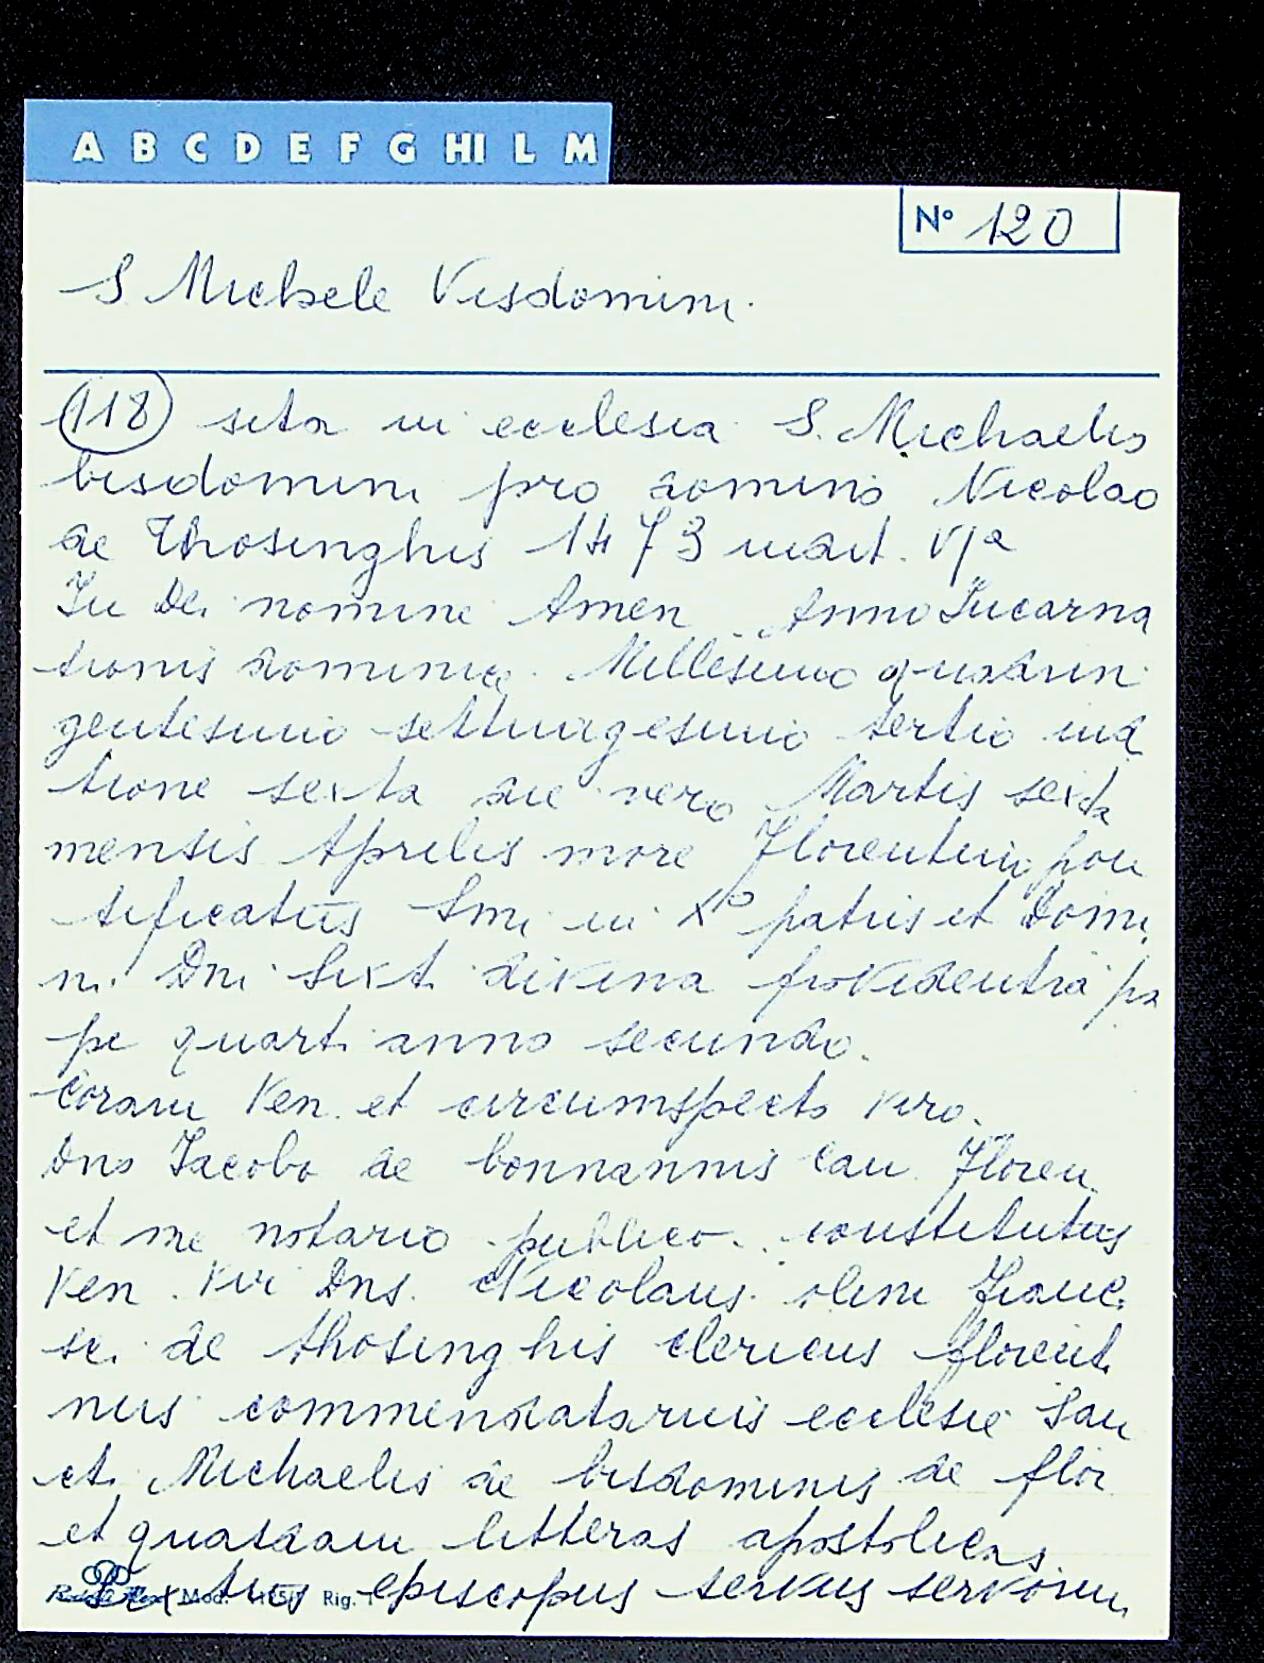 A B C D E F G HI L M
N° 120
S Michele Visdomini.
118 sita in ecclesia S. Michaelis
bisdomini pro domino Nicolao
de Thosinghis 1473 indit. VIa
In Dei nomine Amen Anno Incarna
tionis dominice. Millesimo quadrin
gentesimo settuagesimo tertio ind
tione sexta die vero Martis sexta
mensis Aprilis more Florentino pon
tificatus Smi in Xo patris et Domi
ni Dni Sixti divina providentia pa
pe quarti anno secundo.
Coram Ven. et circumspecto viro.
Dno Iacobo de bonnannis can Floren.
et me notario publico. constitutus
Ven. Vir Dns. Nicolaus olim Franc.
sci de thosinghis clericus florent.
nus commendatarius ecclesie San
cti Michaelis de bisdominis de flor
et quasdam litteras apostolicas.
Sextus episcopus servus servorum
Mod. Rig.